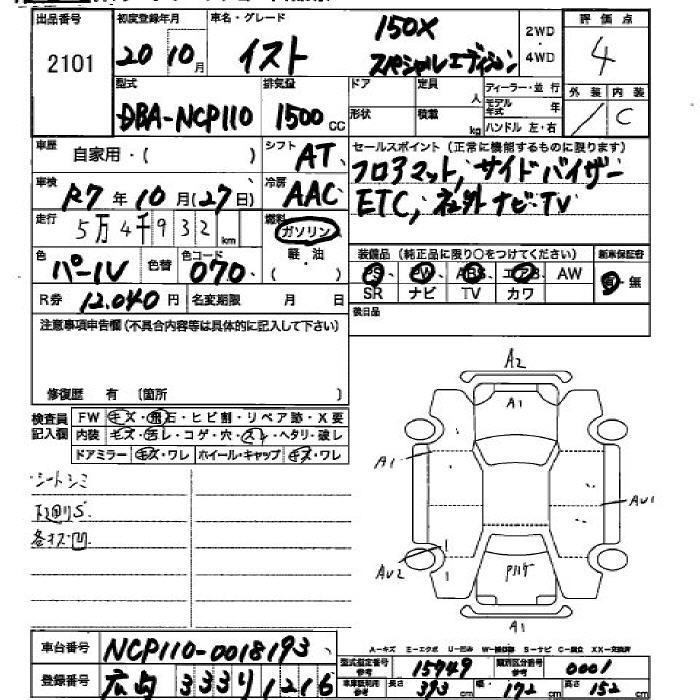 出品番号 初度登録年月 車名・グレード 150X 2WD・4WD 評価点
2101 20 10月 イスト スペシャルエディション 4
型式 排気量 ドア 定員 人 ディーラー・並行 外装 内装
DBA-NCP110 1500cc 形状 積載 kg モデル年式 年 ハンドル 左・右 / C
車歴 自家用・( ) シフト AT セールスポイント(正常に機能するものに限ります)
車検 R7年10月(27日) 冷房 AAC フロアマット, サイドバイザー
走行 5万4千932km 燃料 ガソリン・軽油 ( ) ETC, 社外ナビ・TV
色 パール 色替 色コード 070 装備品(純正品に限り○をつけてください) 新車保証書
PS、PW、ABS、エアB、AW 有・無
R券 12,040円 名変期限 月 日 SR ナビ TV カワ
注意事項申告欄(不具合内容等は具体的に記入して下さい) 後日品
修復歴 有 〔箇所 〕
検査員記入欄 FW キズ・飛石・ヒビ割・リペア跡・X要
内装 キズ・汚レ・コゲ・穴・スレ・ヘタリ・破レ
ドアミラー キズ・ワレ ホイール・キャップ キズ・ワレ
シートシミ
下廻りS
各キズ凹
A2
A1
A1
AU1
AU2
A1
A-キズ E-エクボ U-凹み W-補修跡 S-サビ C-腐蝕 XX-交換済
車台番号 NCP110-0018193 型式指定番号 参考 15749 類別区分番号 参考 0001
登録番号 広島 333り1216 車庫証明用 参考 長さ 393cm 幅 172cm 高さ 152cm